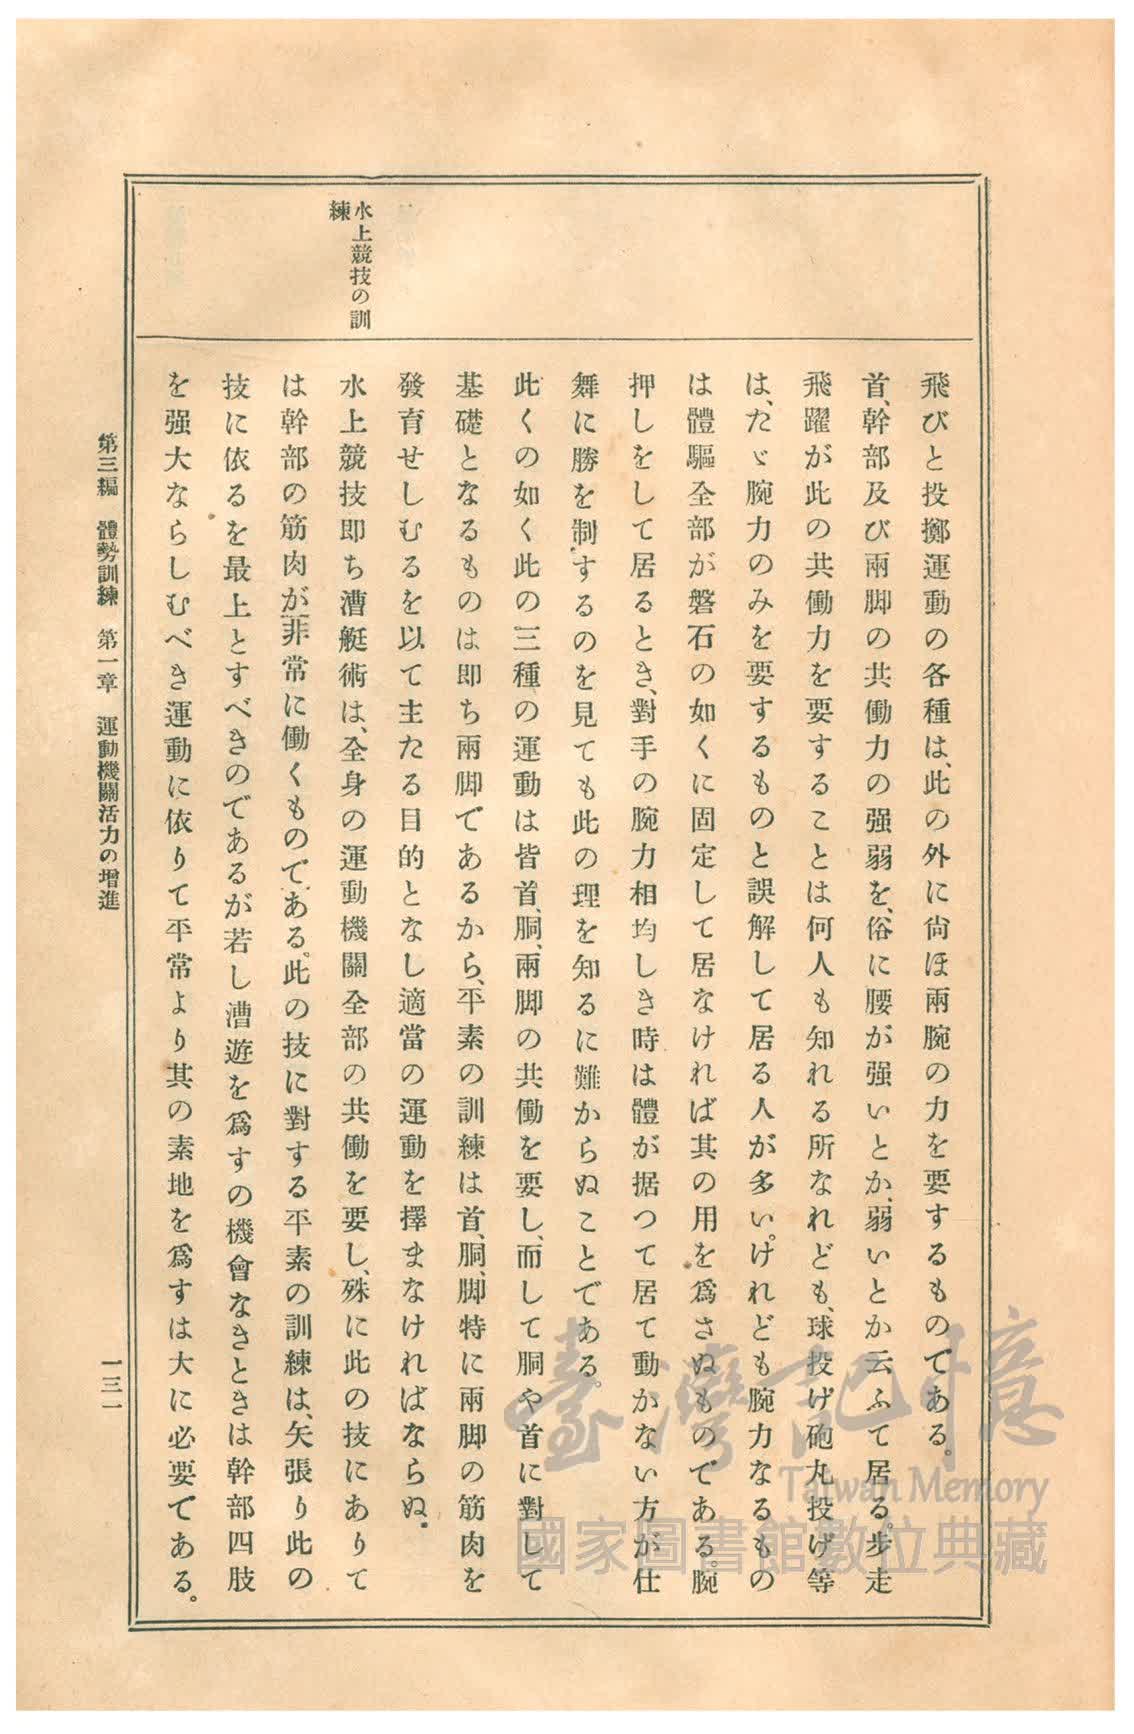 水上競技の訓
練
飛びと投擲運動の各種は、此の外に尙ほ兩腕の力を要するものである。
首、幹部及び兩脚の共働力の强弱を、俗に腰が强いとか、弱いとか云ふて居る。步走
飛躍が此の共働力を要することは何人も知れる所なれども、球投げ砲丸投げ等
は、たゞ腕力のみを要するものと誤解して居る人が多い。けれども腕力なるもの
は體軀全部が磐石の如くに固定して居なければ其の用を爲さぬものである。腕
押しをして居るとき、對手の腕力相均しき時は體が据つて居て動かない方が仕
舞に勝を制するのを見ても此の理を知るに難からぬことである。
此くの如く此の三種の運動は皆首、胴、兩脚の共働を要し、而して胴や首に對して
基礎となるものは即ち兩脚であるから、平素の訓練は首、胴、脚特に兩脚の筋肉を
發育せしむるを以て主たる目的となし適當の運動を擇まなければならぬ。
水上競技即ち漕艇術は、全身の運動機關全部の共働を要し、殊に此の技にありて
は幹部の筋肉が非常に働くものである。此の技に對する平素の訓練は、矢張り此の
技に依るを最上とすべきのであるが若し漕遊を爲すの機會なきときは幹部四肢
を强大ならしむべき運動に依りて平常より其の素地を爲すは大に必要である。
第三編　體勢訓練　第一章　運動機關活力の增進
一三一
臺灣記憶
Taiwan Memory
國家圖書館數位典藏